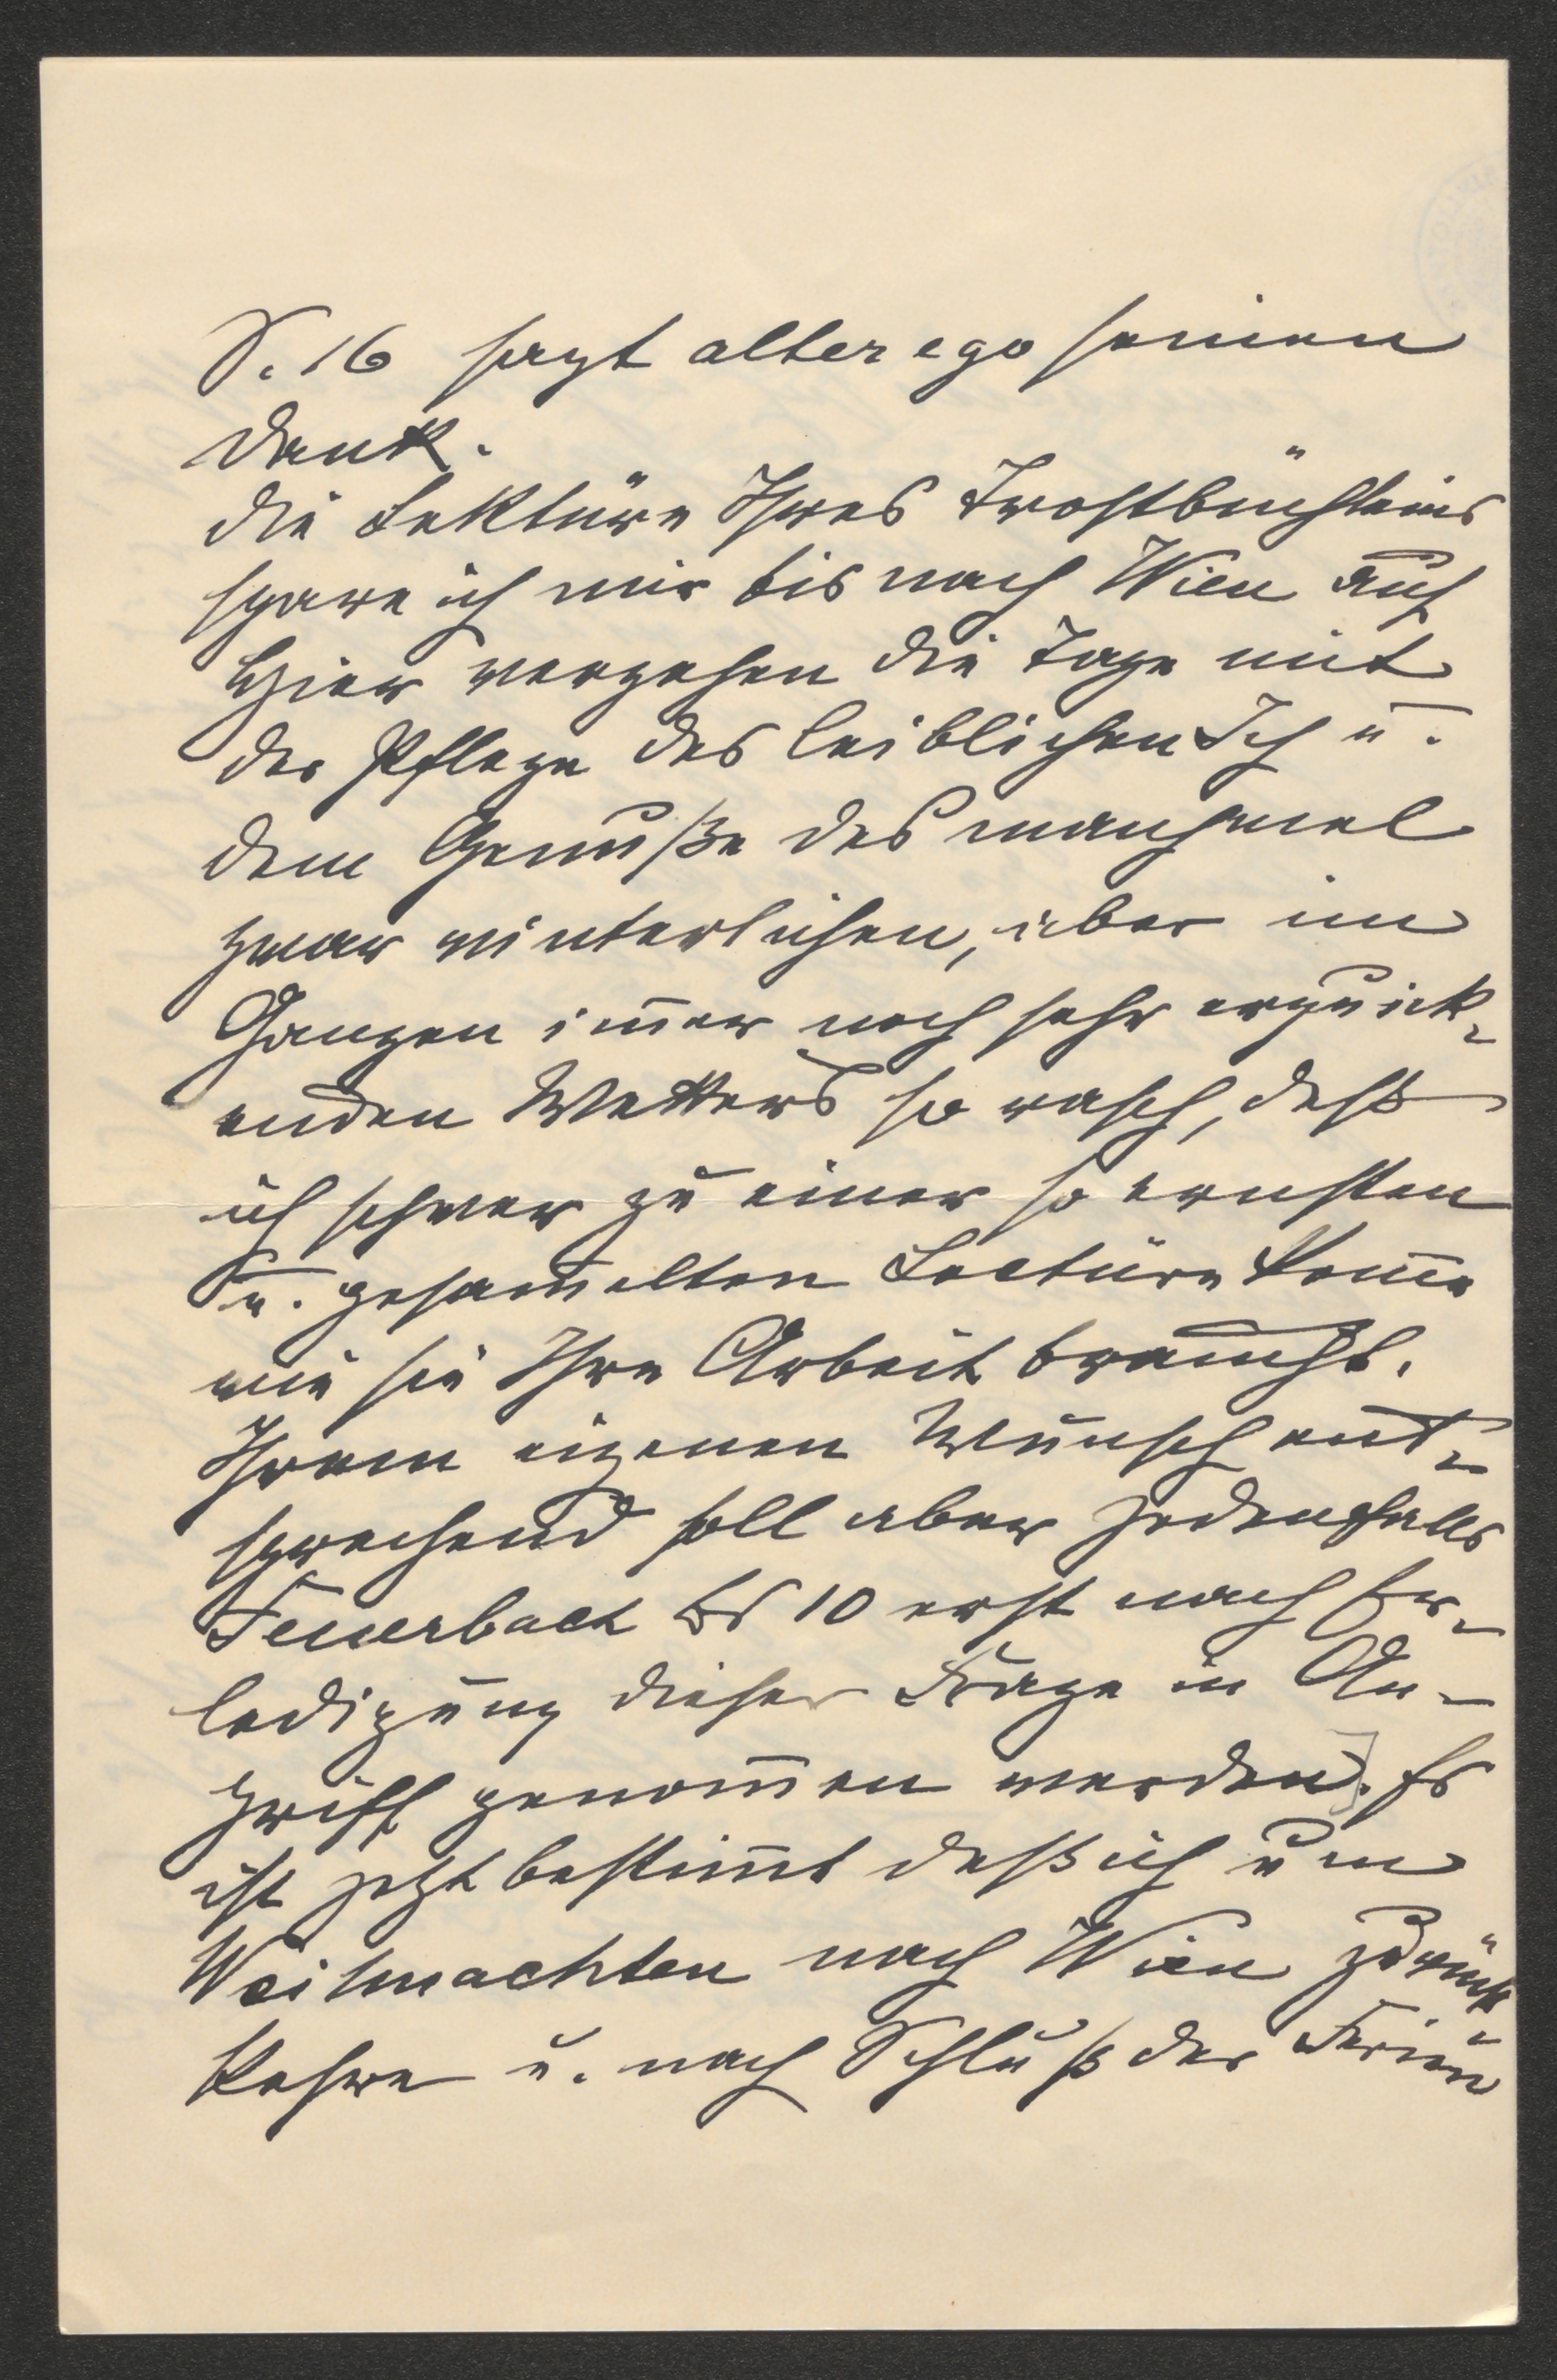 S. 16 sagt alter ego seinen
Dank.
Die Lektüre Ihres Trostbüchleins
spare ich mir bis nach Wien auf
Hier vergehen die Tage mit
der Pflege des leiblichen Ich u.
dem Genuße des manchmal
zwar winterlichen, aber im
Ganzen im̄er noch sehr erquick-
enden Wetters so rasch, daß
ich schwer zu einer so ernsten
u. gesam̄elten Lectüre kom̄e
wie sie Ihre Arbeit braucht.
Ihrem eigenen Wunsch ent-
sprechend soll aber jedenfalls
Feuerbach Bd 10 erst nach Er-
ledigung dieser Frage in An-
griff genom̄en werden]. Es
ist jetzt bestim̄t daß ich um
Weihnachten nach Wien zurück-
kehre u. nach Schluß der Ferien